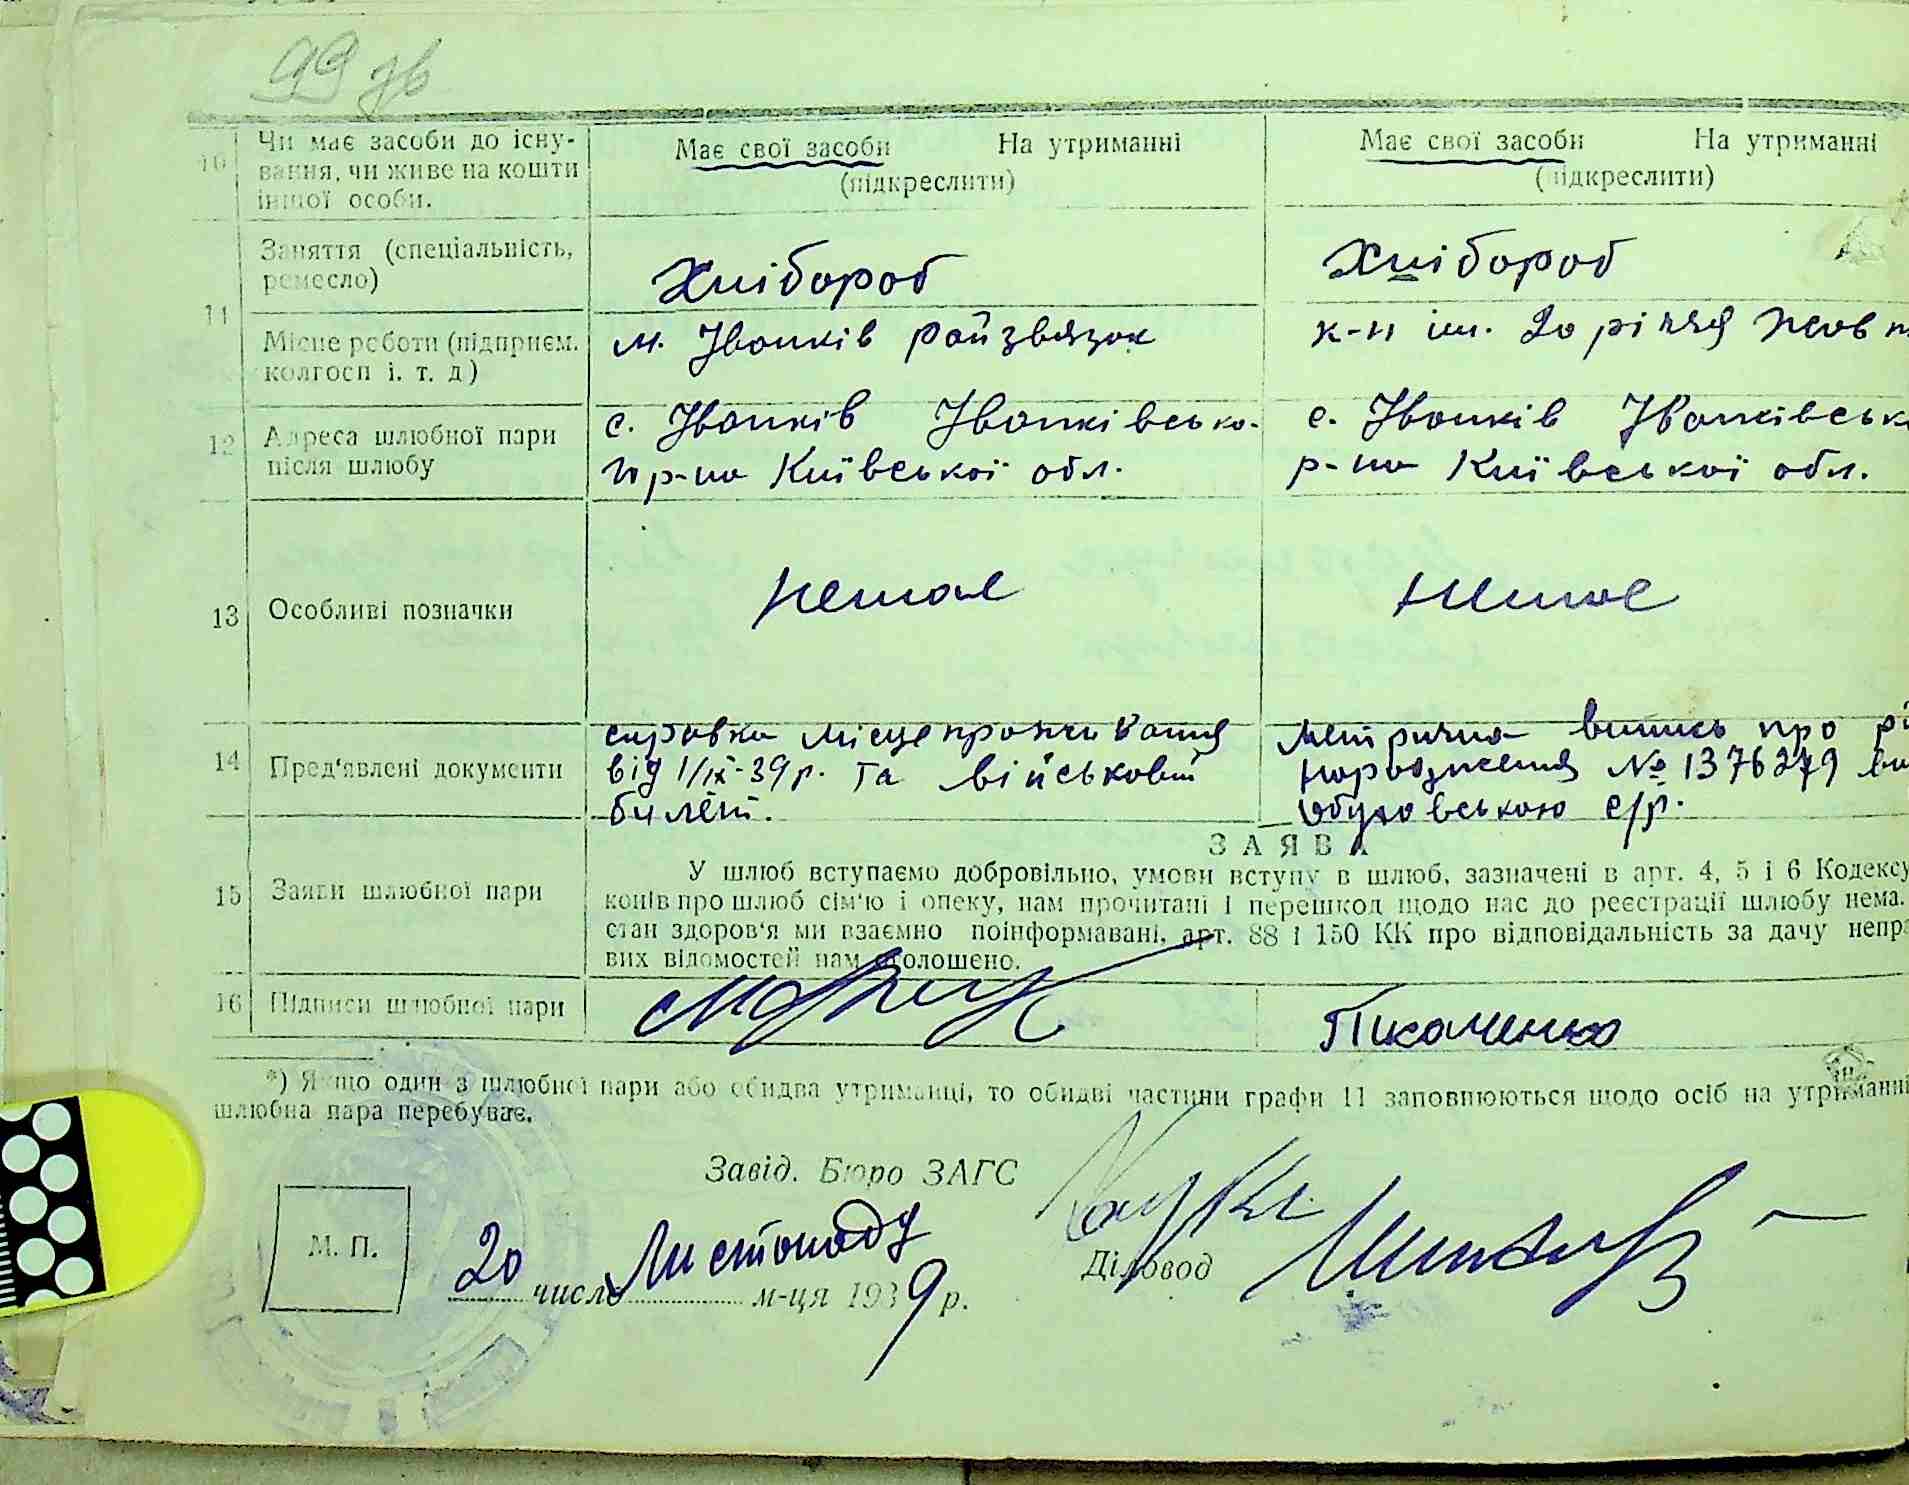 99 зв
10 Чи має засоби до існу-
вання, чи живе на кошти
іншої особи.
Має свої засоби На утриманні
(підкреслити)
Має свої засоби На утриманні
(підкреслити)
11 Заняття (спеціальність,
ремесло)
Хлібороб
Хлібороб
Місце роботи (підприєм.
колгосп і. т. д)
м. Іванків райзвязок
к-п ім. 20 річчя Жовт
12 Адреса шлюбної пари
після шлюбу
с. Іванків Іванківсько-
го р-на Київської обл.
с. Іванків Іванківськ
р-на Київської обл.
13 Особливі позначки
Немає
Немає
14 Пред'явлені документи
справка місцепроживання
від 1/IX-39 р. та військовий
билет.
метрична випись про
народження № 1376279
Обуховською с/р.
15 Заяви шлюбної пари
ЗАЯВА
У шлюб вступаємо добровільно, умови вступу в шлюб, зазначені в арт. 4, 5 і 6 Кодексу
конів про шлюб сім'ю і опеку, нам прочитані і перешкод щодо нас до реєстрації шлюбу нема.
стан здоров'я ми взаємно поінформавані, арт. 88 і 150 КК про відповідальність за дачу непра
вих відомостей нам оголошено.
16 Підписи шлюбної пари
Ткаченко
*) Якщо один з шлюбної пари або обидва утриманці, то обидві частини графи 11 заповнюються щодо осіб на утриманні
шлюбна пара перебуває.
Завід. Бюро ЗАГС
М. П.
20 число Листопаду м-ця 1939 р.
Діловод